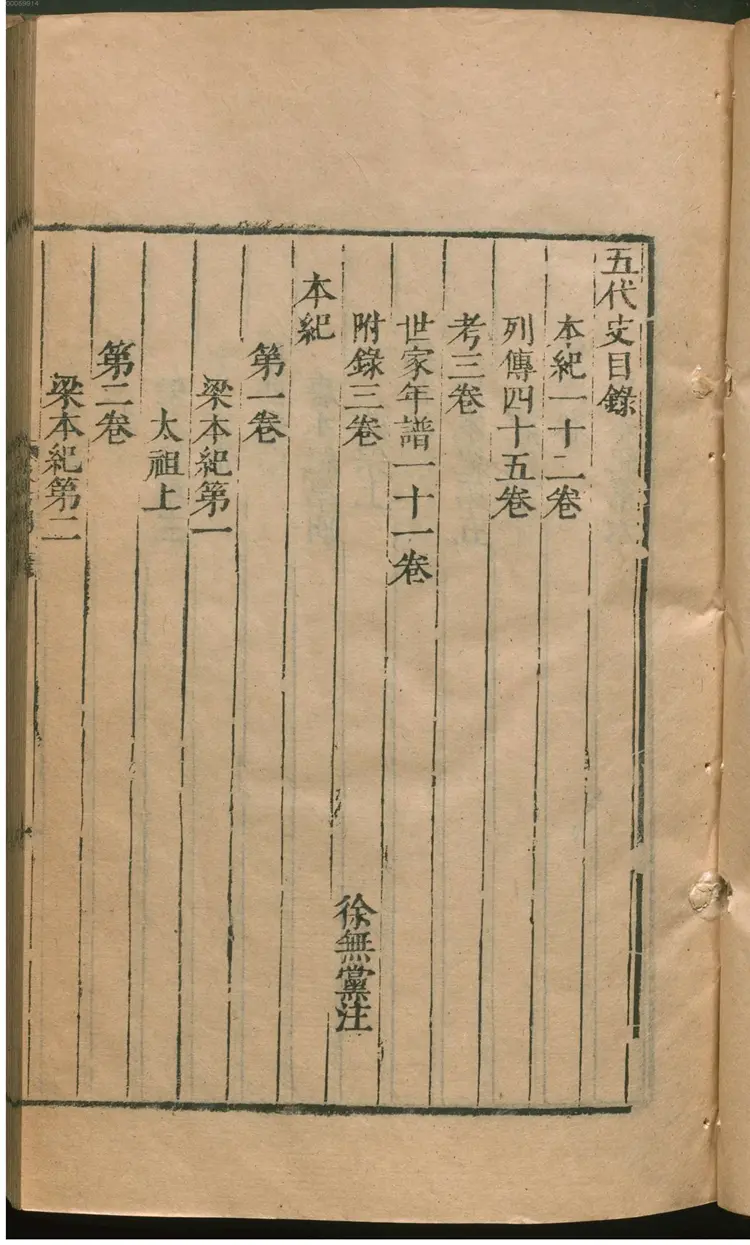 00069614
五代史目錄
本紀一十二卷
列傳四十五卷
考三卷
世家年譜一十一卷
附錄三卷
徐無黨注
本紀
第一卷
梁本紀第一
太祖上
第二卷
梁本紀第二